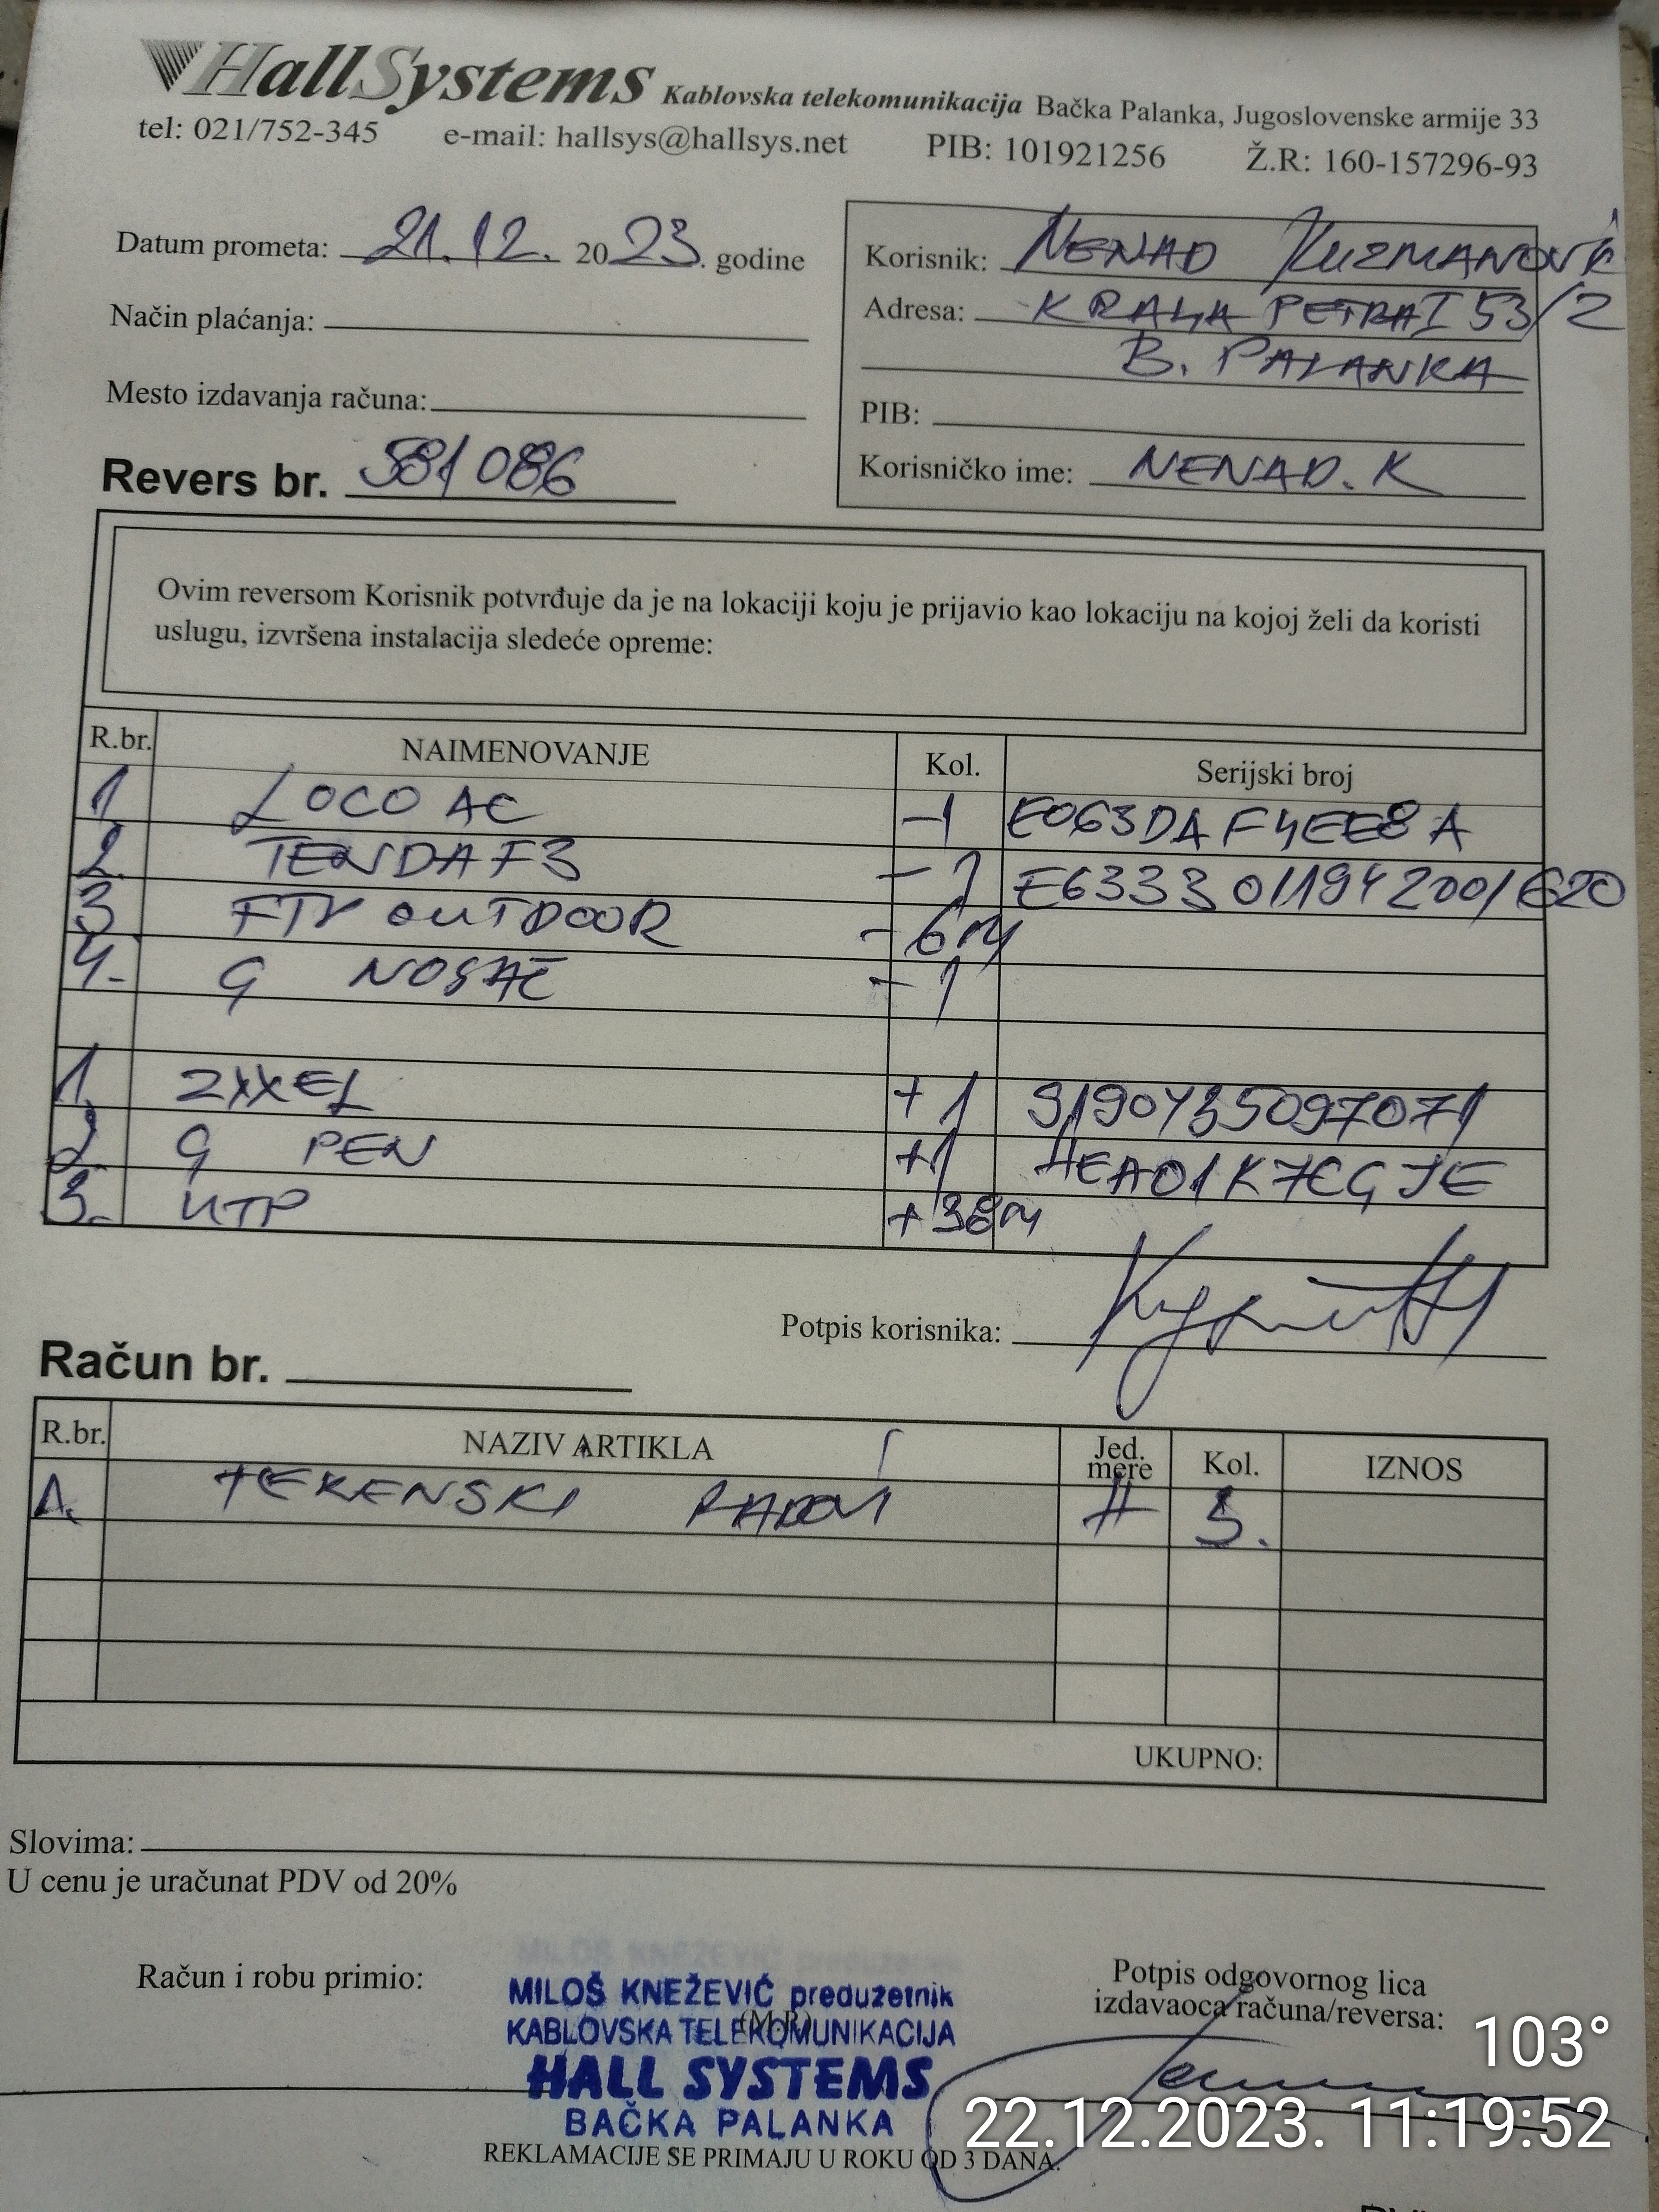 HallSystems Kablovska telekomunikacija Bačka Palanka, Jugoslovenske armije 33
tel: 021/752-345 e-mail: hallsys@hallsys.net PIB: 101921256 Ž.R: 160-157296-93
Datum prometa: 21.12. 2023. godine
Način plaćanja:
Mesto izdavanja računa:
Revers br. 581086
Korisnik: NENAD KUZMANOVIĆ
Adresa: KRALJA PETRA I 53/2
B. PALANKA
PIB:
Korisničko ime: NENAD.K
Ovim reversom Korisnik potvrđuje da je na lokaciji koju je prijavio kao lokaciju na kojoj želi da koristi
uslugu, izvršena instalacija sledeće opreme:
R.br. NAIMENOVANJE Kol. Serijski broj
1. LOCO AC -1 E063DAF4EE8A
2. TENDA F3 -1 E6333011942001620
3 FTP OUTDOOR -6M
4. G NOSAČ -1
1. ZYXEL +1
2. G PEN +1
3. UTP +38M
Potpis korisnika:
Račun br.
R.br. NAZIV ARTIKLA Jed. mere Kol. IZNOS
1. TERENSKI RADOVI H 3.
UKUPNO:
Slovima:
U cenu je uračunat PDV od 20%
Račun i robu primio:
MILOŠ KNEŽEVIĆ preduzetnik
(M.P.)
KABLOVSKA TELEKOMUNIKACIJA
HALL SYSTEMS
BAČKA PALANKA
Potpis odgovornog lica
izdavaoca računa/reversa:
REKLAMACIJE SE PRIMAJU U ROKU OD 3 DANA.
103°
22.12.2023. 11:19:52